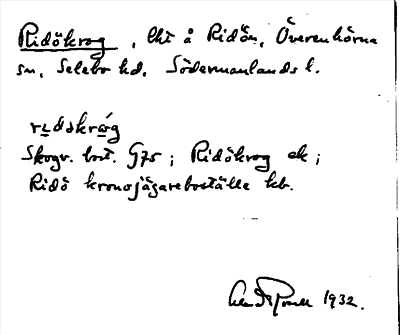 Ridökrog, lht å Ridön, Överenhörna
sn, Selebo hd, Södermanlands l.
rɩdəkrǻg
Skogv. bost. G75; Ridökrog ek;
Ridö kronojägareboställe kb.
1932.